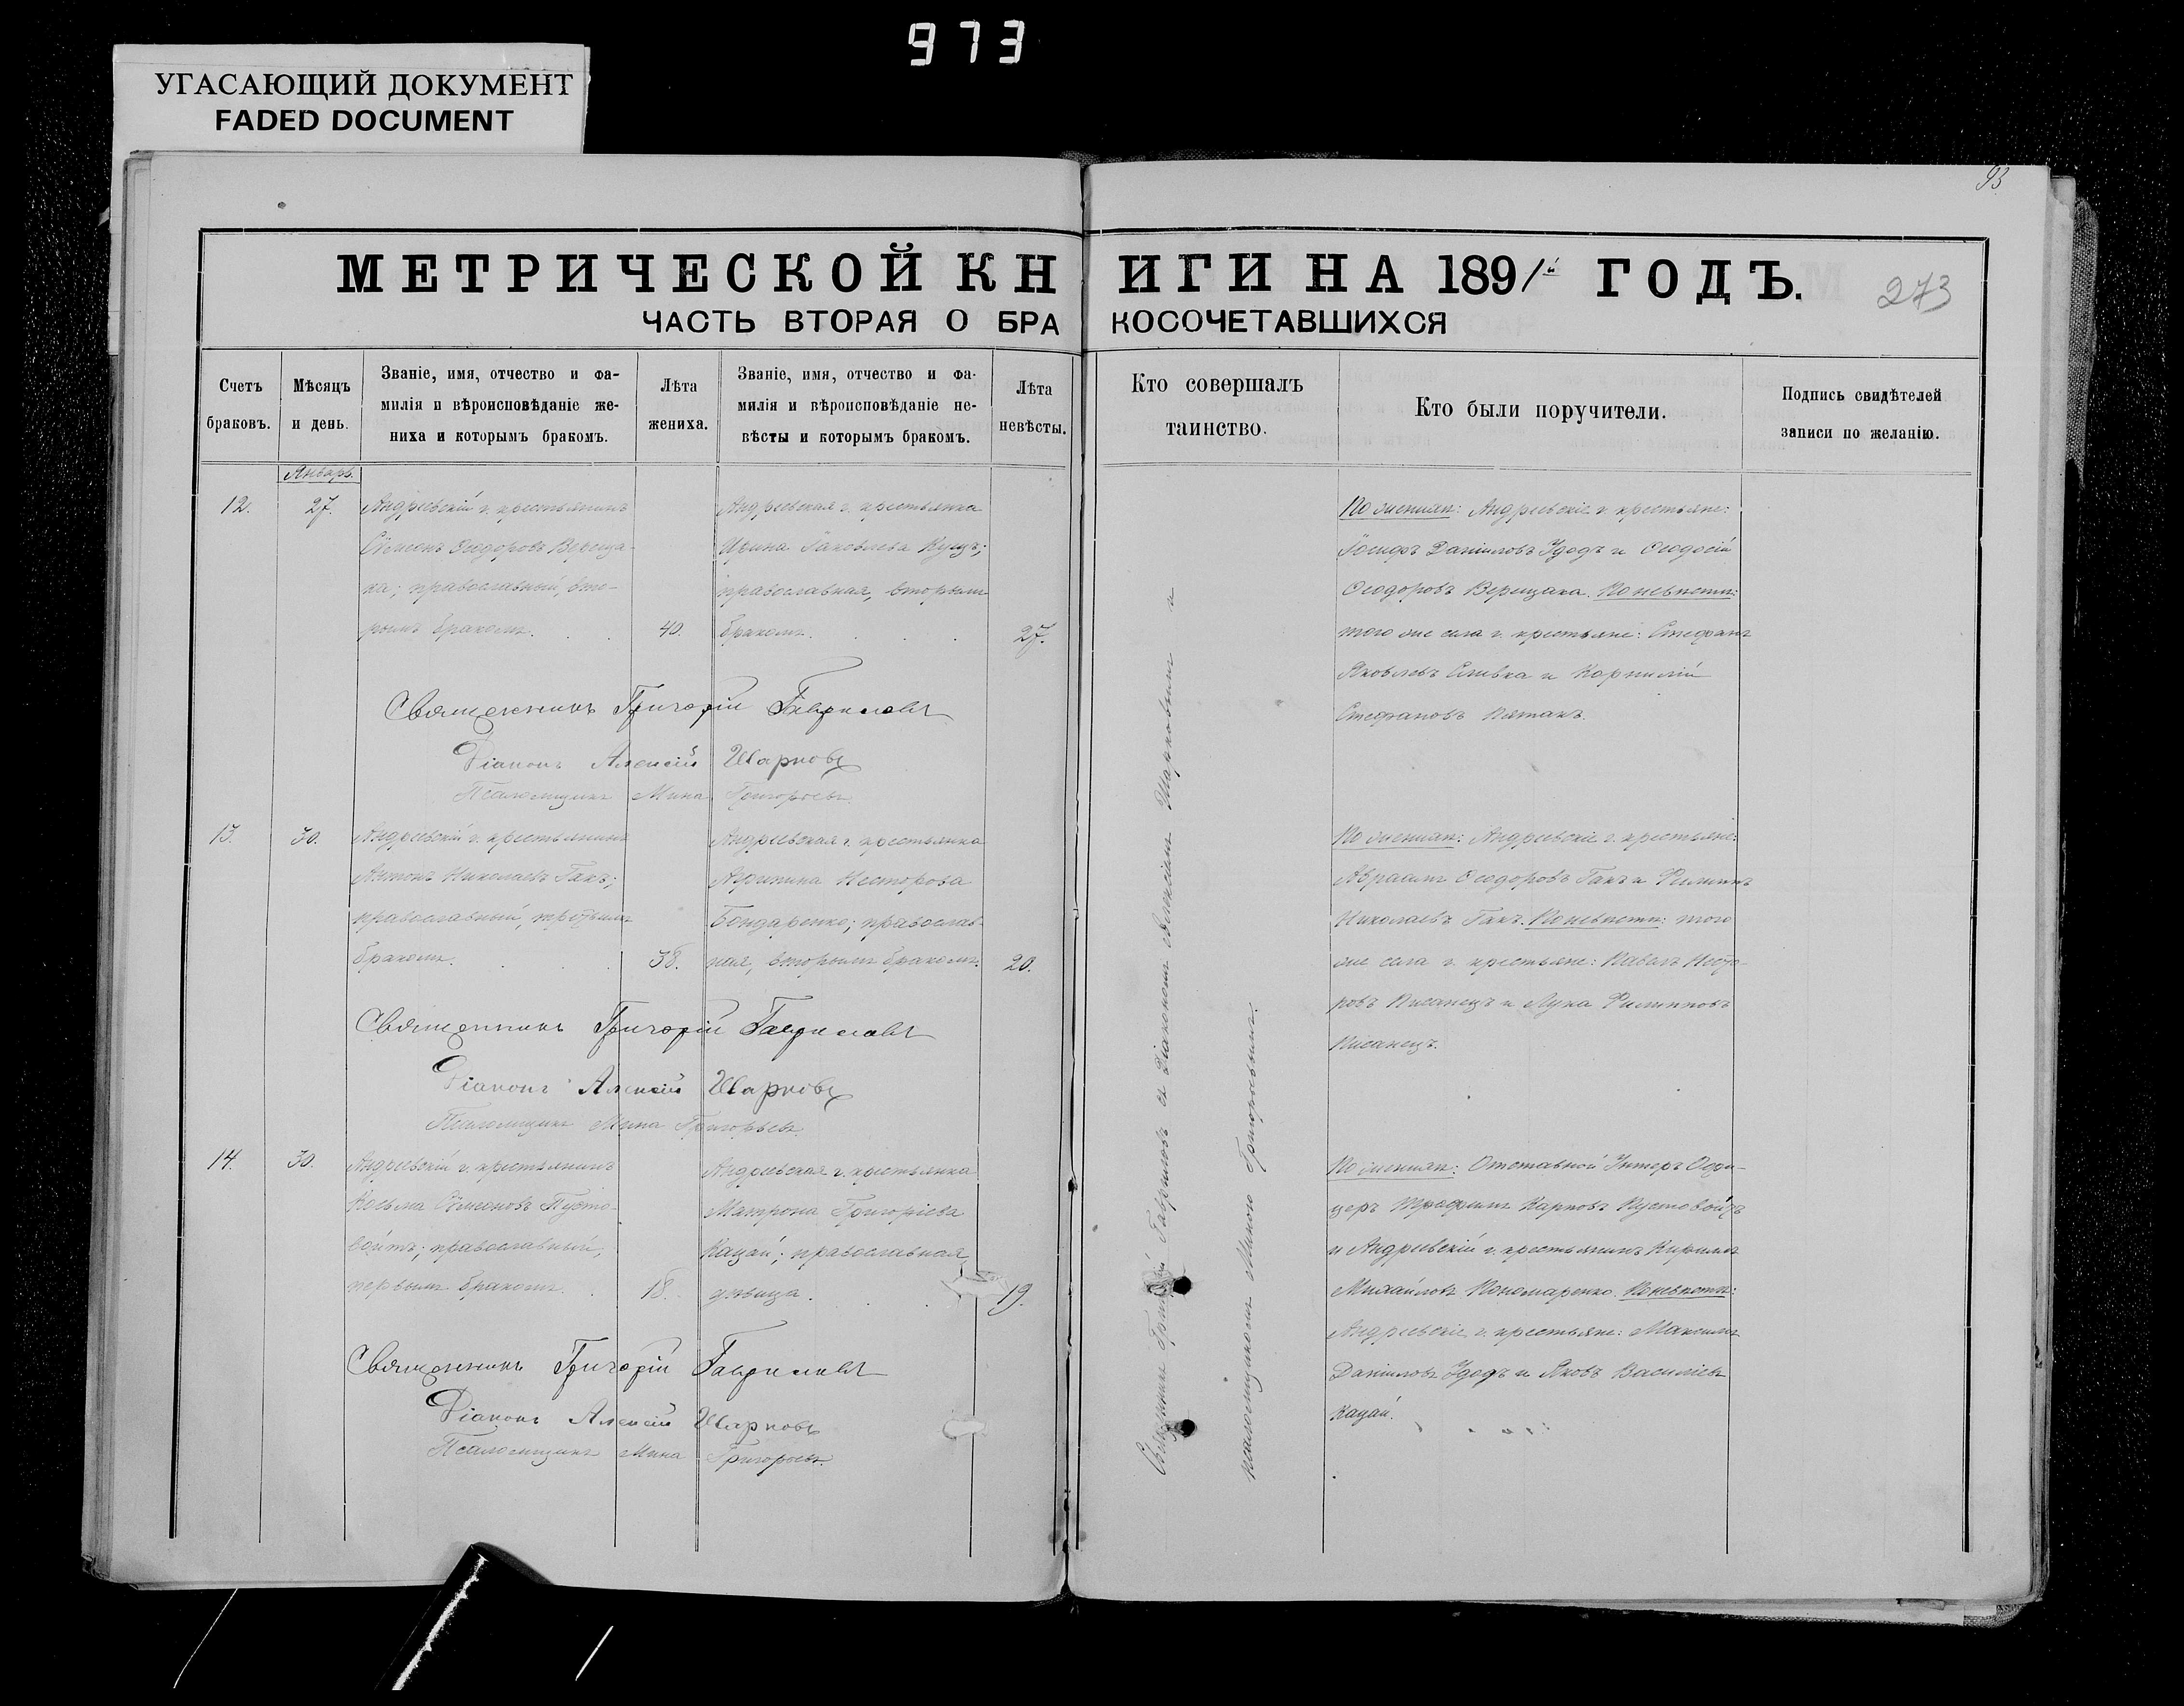 973
УГАСАЮЩИЙ ДОКУМЕНТ
FADED DOCUMENT
93
МЕТРИЧЕСКОЙ КНИГИ НА 1891й ГОДЪ.
273
ЧАСТЬ ВТОРАЯ О БРАКОСОЧЕТАВШИХСЯ
Счетъ браковъ.
Мѣсяцъ и день.
Званіе, имя, отчество и фа-
милія и вѣроисповѣданіе же-
ниха и которымъ бракомъ.
Лѣта жениха.
Званіе, имя, отчество и фа-
милія и вѣроисповѣданіе не-
вѣсты и которымъ бракомъ.
Лѣта невѣсты.
Кто совершалъ таинство.
Кто были поручители.
Подпись свидѣтелей
записи по желанію.
Январь.
12.
27.
Андреевскій г. крестьянинъ
Сѵмеонъ Ѳеодоровъ Вереща-
ка; православный, вто-
рымъ бракомъ.
40.
Андреевская г. крестьянка
Ирина Іаковлева Куцъ;
православная, вторымъ
бракомъ.
27.
По женихѣ: Андреевскіе г. крестьяне:
Іосифъ Даніиловъ Удодъ и Ѳеодосій
Ѳеодоровъ Верещака. По невѣстѣ:
того же села г. крестьяне: Стефанъ
Яковлевъ Сливка и Корнилій
Стефановъ Пятакъ.
Священникъ Григорій Гавриловъ
Діаконъ Алексій Шарковъ
Псаломщикъ Мина Григорьевъ.
13.
30.
Андреевскій г. крестьянинъ
Антонъ Николаевъ Гакъ;
православный, третьимъ
бракомъ.
38.
Андреевская г. крестьянка
Агрипина Несторова
Бондаренко; православ-
ная, вторымъ бракомъ.
20.
По женихѣ: Андреевскіе г. крестьяне:
Авраамъ Ѳеодоровъ Гакъ и Филиппъ
Николаевъ Гакъ. По невѣстѣ: того
же села г. крестьяне: Павелъ Несто-
ровъ Писанецъ и Лука Филипповъ
Писанецъ.
Священникъ Григорій Гавриловъ
Діаконъ Алексій Шарковъ
Псаломщикъ Мина Григорьевъ.
14.
30.
Андреевскій г. крестьянинъ
Косьма Сѵмеоновъ Пусто-
войтъ; православный,
первымъ бракомъ.
18.
Андреевская г. крестьянка
Матрона Григоріева
Кацай; православная,
дѣвица.
19.
По женихѣ: Отставной Унтеръ Офи-
церъ Трофимъ Карповъ Пустовойтъ
и Андреевскій г. крестьянинъ Кириллъ
Михайловъ Пономаренко. По невѣстѣ:
Андреевскіе г. крестьяне: Максимъ
Даніиловъ Удодъ и Яковъ Василіевъ
Кацай.
Священникъ Григорій Гавриловъ
Діаконъ Алексій Шарковъ
Псаломщикъ Мина Григорьевъ.
Священникъ Григорій Гавриловъ съ Діакономъ Алексіемъ Шарковымъ и
псаломщикомъ Миною Григорьевымъ.